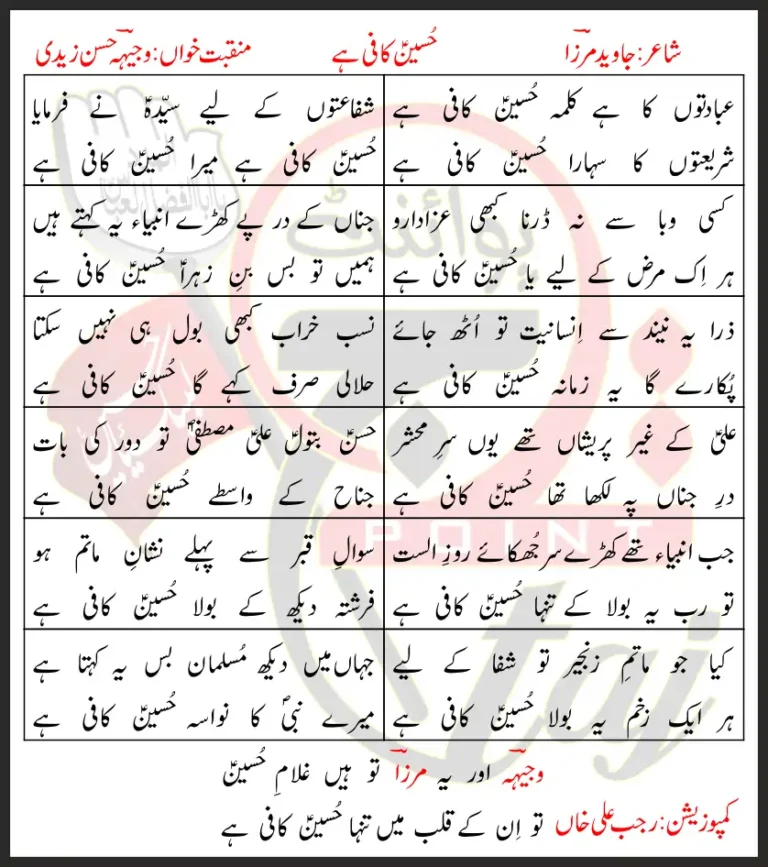 شاعر: جاوید مرزاؔ
حُسینؑ کافی ہے
منقبت خواں: وجیہہؔ حسن زیدی
عبادتوں کا ہے کلمہ حُسینؑ کافی ہے
شریعتوں کا سہارا حُسینؑ کافی ہے
شفاعتوں کے لیے سیّدہؑ نے فرمایا
حُسینؑ کافی ہے میرا حُسینؑ کافی ہے
کسی وبا سے نہ ڈرنا کبھی عزادارو
ہر اِک مرض کے لیے یا حُسینؑ کافی ہے
جناں کے در پے کھڑے انبیاء یہ کہتے ہیں
ہمیں تو بس بنِ زہراؑ حُسینؑ کافی ہے
ذرا یہ نیند سے اِنسانیت تو اُٹھ جائے
پُکارے گا یہ زمانہ حُسینؑ کافی ہے
نسب خراب کبھی بول ہی نہیں سکتا
حلالی صرف کہے گا حُسینؑ کافی ہے
علیؑ کے غیر پریشاں تھے یوں سرِ محشر
درِ جناں پہ لکھا تھا حُسینؑ کافی ہے
حسنؑ بتولؑ علیؑ مصطفیٰؐ تو دور کی بات
جناح کے واسطے حُسینؑ کافی ہے
جب انبیاء تھے کھڑے سر جُھکائے روزِ الست
تو رب یہ بولا کے تنہا حُسینؑ کافی ہے
سوالِ قبر سے پہلے نشانِ ماتم ہو
فرشتہ دیکھ کے بولا حُسینؑ کافی ہے
کیا جو ماتمِ زنجیر تو شفا کے لیے
ہر ایک زخم یہ بولا حُسینؑ کافی ہے
جہاں میں دیکھ مُسلمان بس یہ کہتا ہے
میرے نبیؐ کا نواسہ حُسینؑ کافی ہے
وجیہہؔ اور یہ مرزاؔ تو ہیں غلامِ حُسینؑ
تو اِن کے قلب میں تنہا حُسینؑ کافی ہے
کمپوزیشن: رجب علی خاں
پوائنٹ
POINT
taj